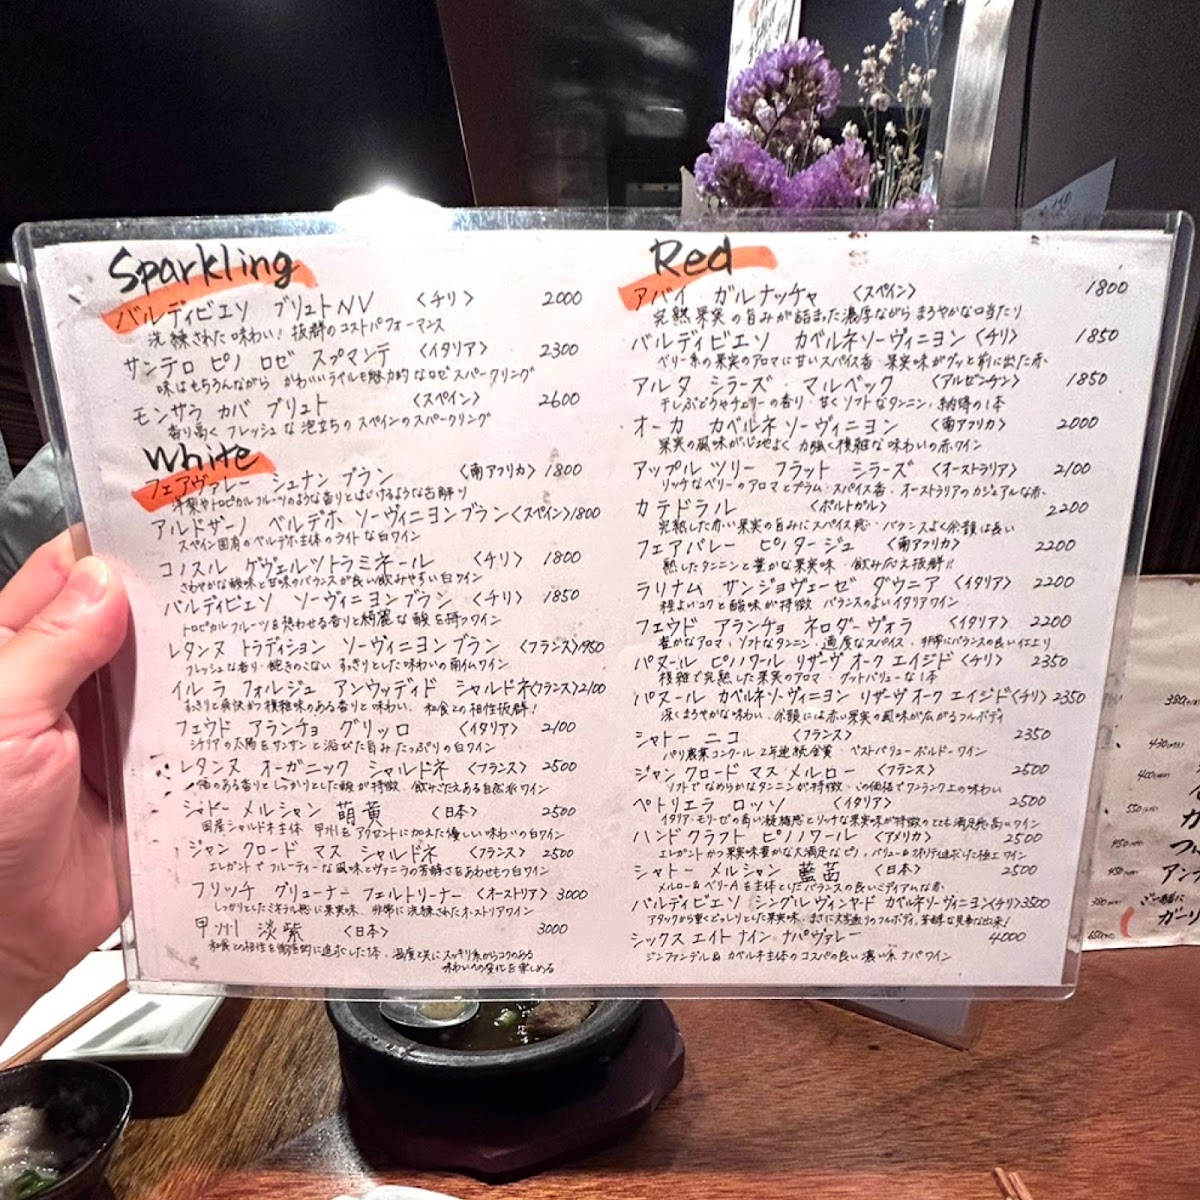 Sparkling
バルディビエソ ブリュトNV 〈チリ〉 2000
洗練された味わい! 抜群のコストパフォーマンス
サンテロ ピノ ロゼ スプマンテ 〈イタリア〉 2300
味はもちろんながら かわいいラベルも魅力的なロゼスパークリング
モンサラ カバ ブリュト 〈スペイン〉 2600
香り高く フレッシュな泡立ちのスペインのスパークリング
White
フェアヴァレー シュナン ブラン 〈南アフリカ〉 1800
洋梨やトロピカルフルーツのような香りとはじけるような舌触り
アルドザーノ ベルデホ ソーヴィニヨンブラン〈スペイン〉1800
スペイン固有のベルデホ主体のライトな白ワイン
コノスル ゲヴェルツトラミネール 〈チリ〉 1800
さわやかな酸味と甘味のバランスが良い飲みやすい白ワイン
バルディビエソ ソーヴィニヨンブラン 〈チリ〉 1850
トロピカルフルーツを想わせる香りと綺麗な酸を持つワイン
レタンヌ トラディション ソーヴィニヨン ブラン 〈フランス〉1950
フレッシュな香り・飽きのこない すっきりとした味わいの南仏ワイン
イル ラ フォルジュ アンウッディド シャルドネ〈フランス〉2100
すっきりと爽快かつ複雑味のある香りと味わい、和食との相性抜群!
フェウド アランチョ グリッロ 〈イタリア〉 2100
シチリアの太陽をサンサンと浴びた旨みたっぷりの白ワイン
レタンヌ オーガニック シャルドネ 〈フランス〉 2500
樽のある香りとしっかりとした酸が特徴、飲みごたえある自然派ワイン
シャトー メルシャン 萌黄 〈日本〉 2500
国産シャルドネ主体 甲州をアクセントに加えた優しい味わいの白ワイン
ジャン クロード マス シャルドネ 〈フランス〉 2500
エレガントで フルーティーな風味とヴァニラの芳醇さをあわせもつ白ワイン
フリッチ グリューナー フェルトリーナー 〈オーストリア〉 3000
しっかりとしたミネラル感に果実味、非常に洗練されたオーストリアワイン
甲州 淡紫 〈日本〉 3000
和食との相性を徹底的に追求した1本、温度と共にスッキリ系からコクのある
味わいへの変化を楽しめる
Red
アバイ ガルナッチャ 〈スペイン〉 1800
完熟果実の旨みが詰まった濃厚ながらまろやかな口当たり
バルディビエソ カベルネソーヴィニヨン〈チリ〉 1850
ベリー系の果実のアロマに甘いスパイス香・果実味がグッと前に出た赤
アルタ シラーズ・マルベック 〈アルゼンチン〉 1850
干しぶどうやチェリーの香り・甘くソフトなタンニン、納得の1本
オーカ カベルネソーヴィニヨン 〈南アフリカ〉 2000
果実の風味が心地よく 力強く複雑な味わいの赤ワイン
アップルツリー フラット シラーズ 〈オーストラリア〉 2100
リッチなベリーのアロマとプラム・スパイス香、オーストラリアのカジュアルな赤
カテドラル 〈ポルトガル〉 2200
完熟した赤い果実の旨みにスパイス感・バランスよく余韻は長い
フェアバレー ピノタージュ 〈南アフリカ〉 2200
熟したタンニンと豊かな果実味 飲み応え抜群!!
ラリナム サンジョヴェーゼ ダウニア 〈イタリア〉 2200
程よいコクと酸味が特徴 バランスのよいイタリアワイン
フェウド アランチョ ネロダーヴォラ 〈イタリア〉 2200
豊かなアロマ、ソフトなタンニン・適度なスパイス、非常にバランスの良い仕上り
パヌール ピノノワール リザーヴ オーク エイジド 〈チリ〉 2350
複雑で完熟した果実のアロマ・グッドバリューな1本
パヌール カベルネソーヴィニヨン リザーヴ オーク エイジド〈チリ〉2350
深くまろやかな味わい、余韻には赤い果実の風味が広がるフルボディ
シャトー ニコ 〈フランス〉 2350
パリ農業コンクール2年連続金賞 ベストバリューボルドーワイン
ジャン クロード マス メルロー 〈フランス〉 2500
ソフトでなめらかなタンニンが特徴、この価格でワンランク上の味わい
ペトリエラ ロッソ 〈イタリア〉 2500
イタリア・モリーゼの高い凝縮感とリッチな果実味が特徴のとても満足感高いワイン
ハンドクラフト ピノノワール 〈アメリカ〉 2500
エレガントかつ果実味豊かな大満足なピノ、バリュー&クオリティ追求した極上ワイン
シャトー メルシャン 藍茜 〈日本〉 2500
メルロー&ベリーAを主体としたバランスの良いミディアムな赤
バルディビエソ シングル ヴィンヤード カベルネソーヴィニヨン〈チリ〉3500
アタックから重くどっしりとした果実味、まさに大当りのフルボディ、芳醇な見事な出来!
シックスエイトナイン ナパヴァレー 4000
ジンファンデル&カベルネ主体のコスパの良い濃い系ナパワイン